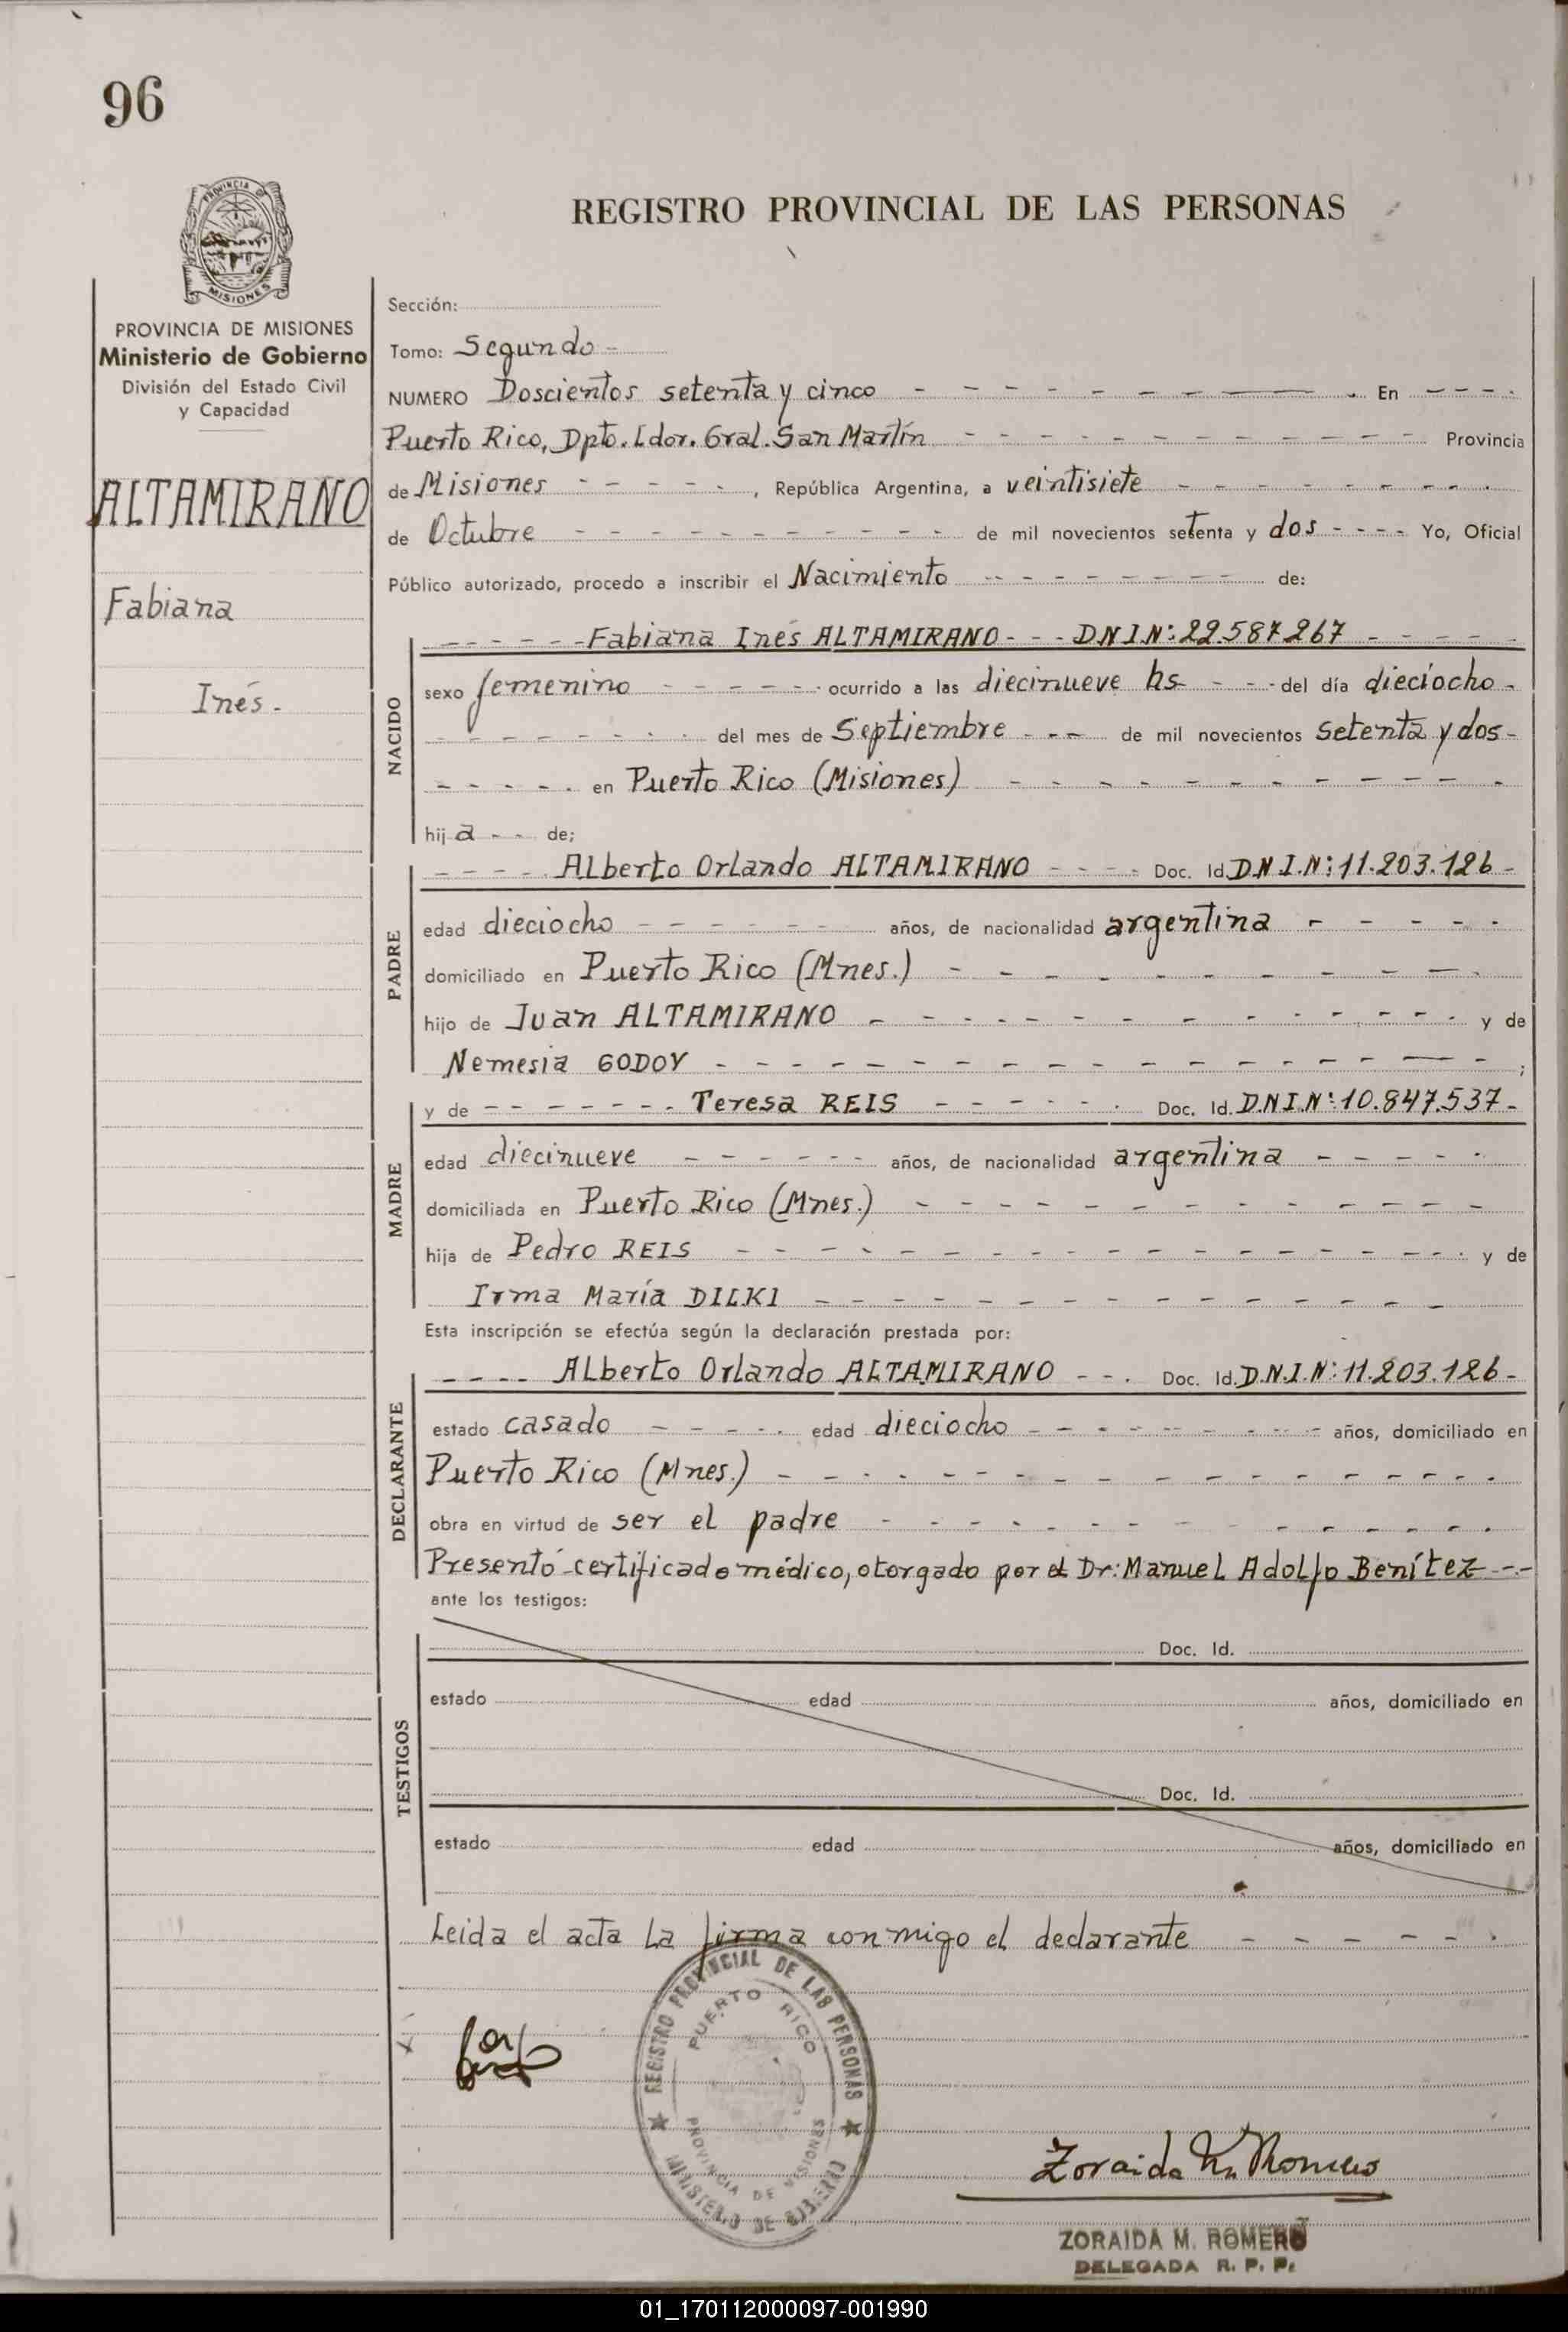 96
PROVINCIA DE
MISIONES
REGISTRO PROVINCIAL DE LAS PERSONAS
PROVINCIA DE MISIONES
Ministerio de Gobierno
División del Estado Civil
y Capacidad
ALTAMIRANO
Fabiana
Inés.
Sección:
Tomo: Segundo
NUMERO Doscientos setenta y cinco En
Puerto Rico, Dpto. Ldor. Gral. San Martín Provincia
de Misiones , República Argentina, a veintisiete
de Octubre de mil novecientos setenta y dos Yo, Oficial
Público autorizado, procedo a inscribir el Nacimiento de:
NACIDO
Fabiana Inés ALTAMIRANO - - - D.N.I.Nº: 22.587.267
sexo femenino ocurrido a las diecinueve hs del día dieciocho
del mes de Septiembre de mil novecientos setenta y dos
en Puerto Rico (Misiones)
hij a de;
PADRE
Alberto Orlando ALTAMIRANO Doc. Id. D.N.I.Nº: 11.203.126
edad dieciocho años, de nacionalidad argentina
domiciliado en Puerto Rico (Mnes.)
hijo de Juan ALTAMIRANO y de
Nemesia GODOY ;
MADRE
y de Teresa REIS Doc. Id. D.N.I.Nº: 10.847.537
edad diecinueve años, de nacionalidad argentina
domiciliada en Puerto Rico (Mnes.)
hija de Pedro REIS y de
Irma María DILKI
Esta inscripción se efectúa según la declaración prestada por:
DECLARANTE
Alberto Orlando ALTAMIRANO Doc. Id. D.N.I.Nº: 11.203.126
estado casado edad dieciocho años, domiciliado en
Puerto Rico (Mnes.)
obra en virtud de ser el padre
Presentó certificado médico, otorgado por el Dr: Manuel Adolfo Benítez
ante los testigos:
TESTIGOS
Doc. Id.
estado edad años, domiciliado en
Doc. Id.
estado edad años, domiciliado en
Leida el acta la firma conmigo el declarante
REGISTRO PROVINCIAL DE LAS PERSONAS
PUERTO RICO
PROVINCIA DE MISIONES
MINISTERIO DE GOBIERNO
Zoraida M. Romero
ZORAIDA M. ROMERO
DELEGADA R. P. P.
01_170112000097-001990